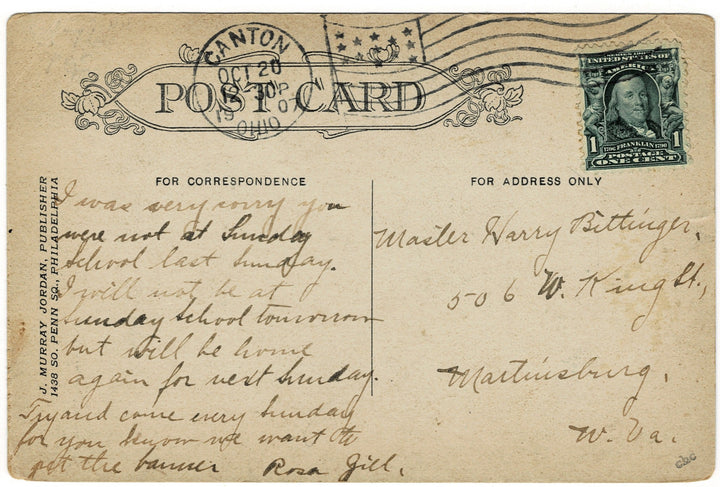 CANTON
OCT 20
1907
OHIO
POST CARD
SERIES 1902
UNITED STATES OF
AMERICA
1 1706 FRANKLIN 1790 1
POSTAGE
ONE CENT
FOR CORRESPONDENCE
FOR ADDRESS ONLY
J. MURRAY JORDAN, PUBLISHER
1438 SO. PENN SQ., PHILADELPHIA
I was very sorry you
were not at Sunday
school last Sunday.
I will not be at
Sunday school tomorrow
but will be home
again for next Sunday.
Try and come every Sunday
for you know we want to
get the banner Rosa Gill.
Master Harry Bittinger,
506 W. King St.,
Martinsburg,
W. Va.
cbc